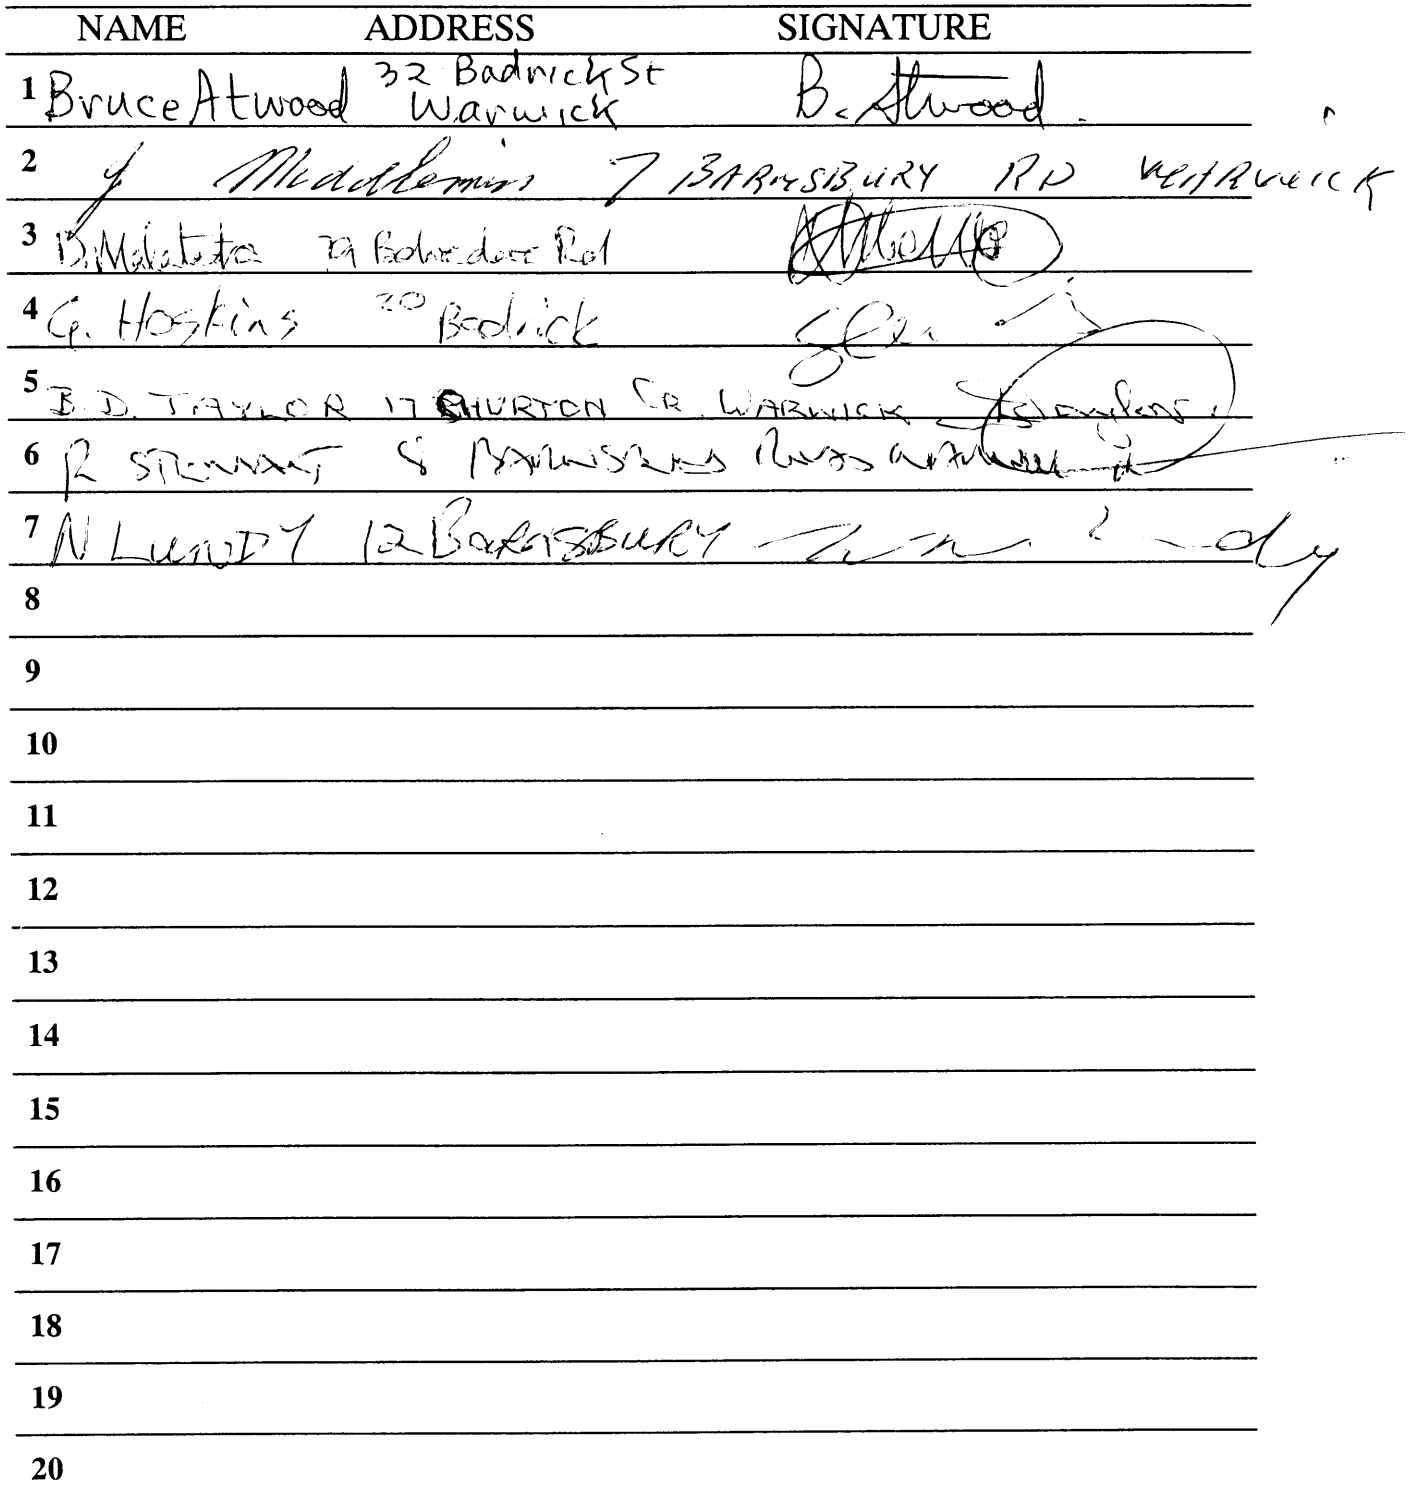 NAME ADDRESS SIGNATURE
1 Bruce Atwood 32 Badrick St B. Atwood.
Warwick
2 J Middlemiss 7 BARNSBURY RD WARWICK
3 D. 29 Belvedere Rd
4 G. Hoskins 20 Bedrick
5 B. D. TAYLOR 17 CHURTON CR. WARWICK
6 R STEWART 8 BARNSBURY ROAD WARWICK
7 N LUNDY 12 BARNSBURY
8
9
10
11
12
13
14
15
16
17
18
19
20